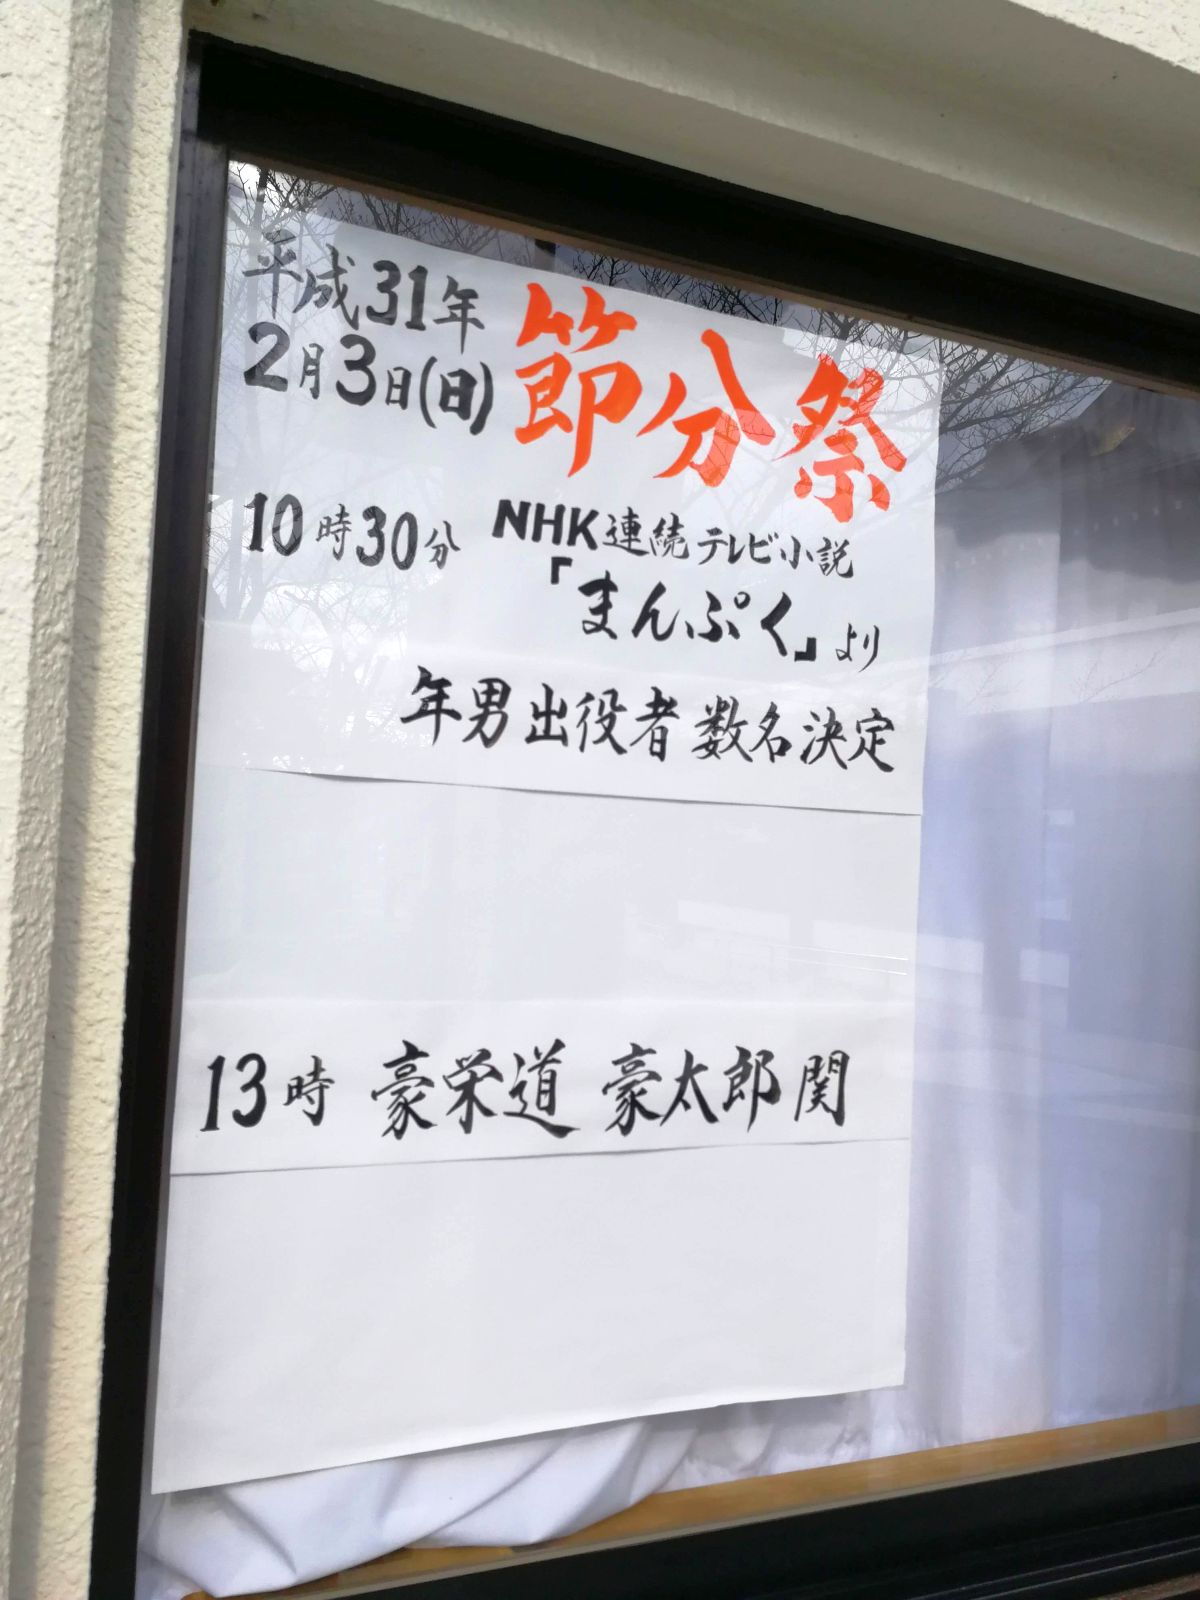 平成31年
2月3日(日)
節分祭
10時30分
NHK連続テレビ小説
「まんぷく」より
年男出役者 数名決定
13時 豪栄道 豪太郎関